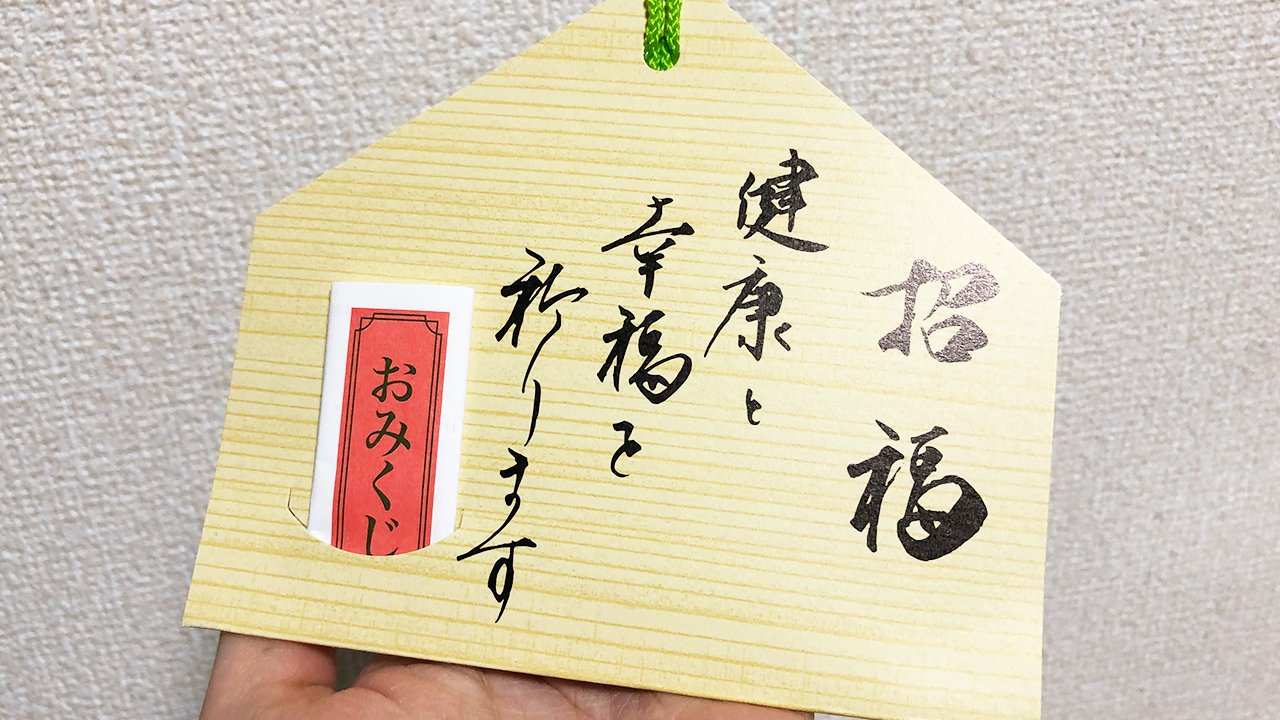 招福
健康と
幸福を
祈ります
おみくじ